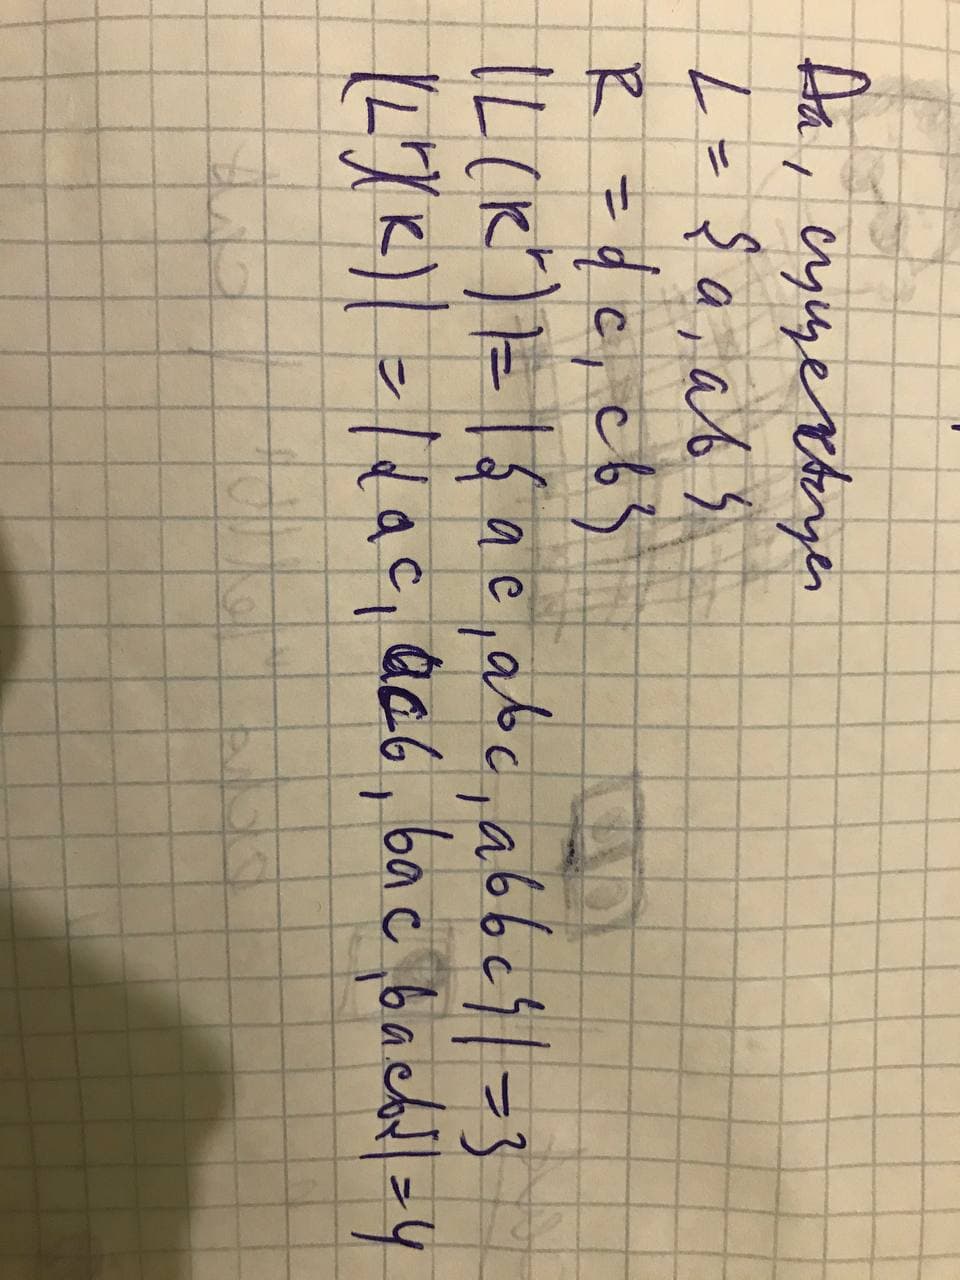 Да, существует
L = {a, ab}
R = {c, cb}
|L(R^r)| = |{ac, abc, abbc}| = 3
|(L^r)(R)| = |{ac, acb, bac, bacb}| = 4